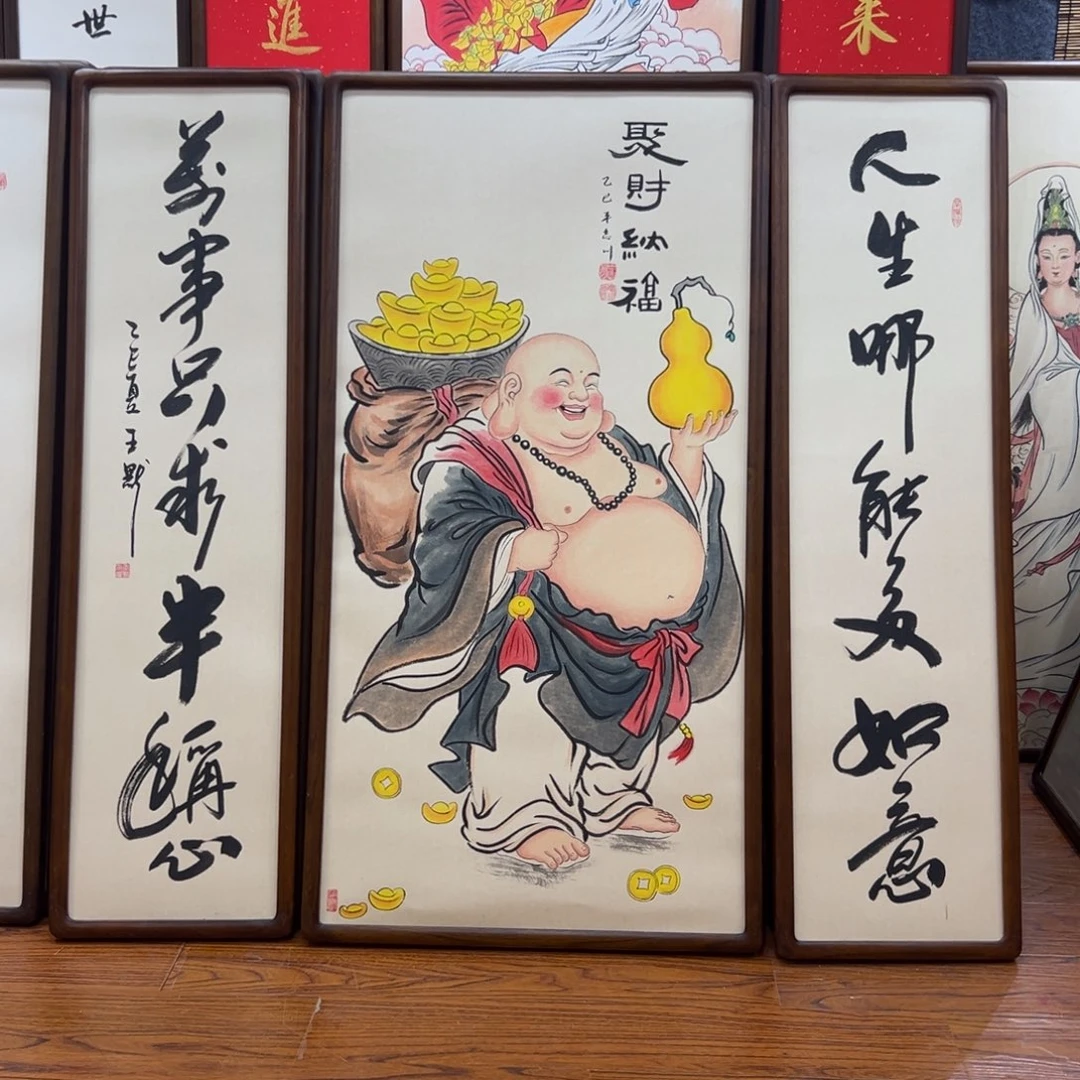 世
進
来
人生哪能多如意
聚財納福
乙巳年
萬事只求半稱心
乙巳夏王默